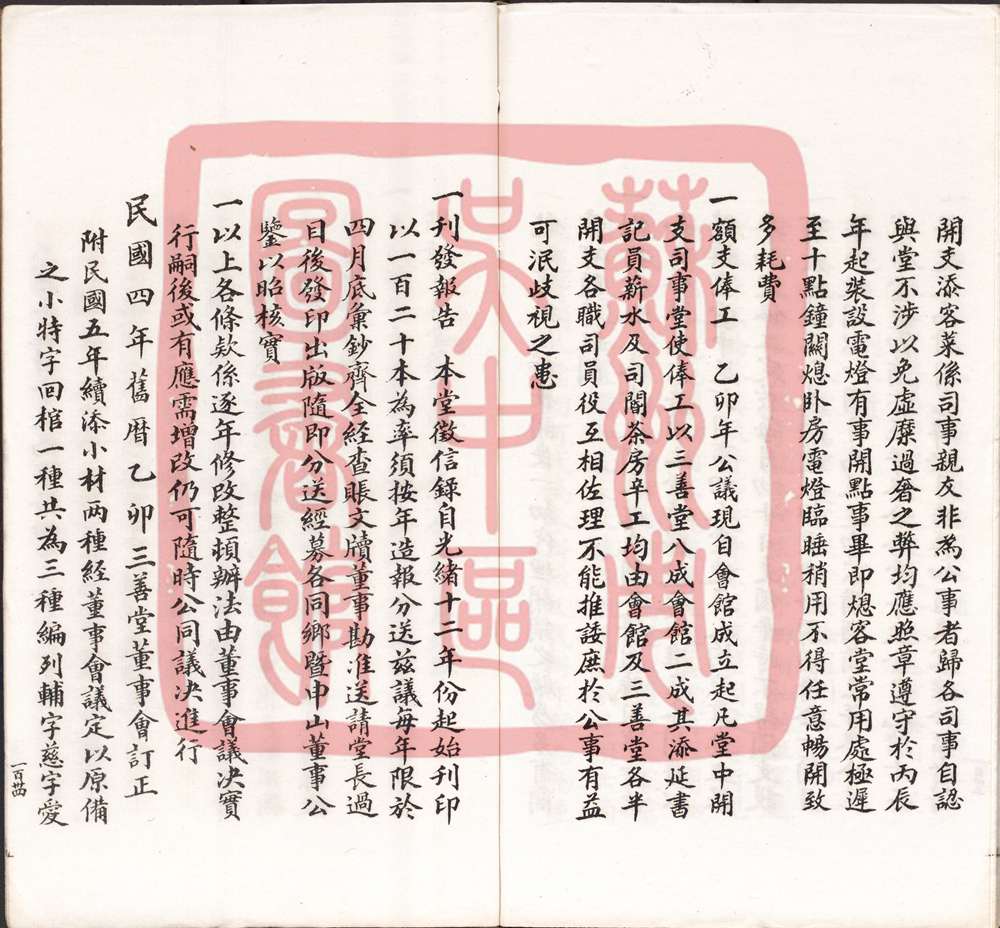 開支添客菜係司事親友非為公事者歸各司事自認
與堂不涉以免虛糜過奢之弊均應照章遵守於丙辰
年起裝設電燈有事開點事畢即熄客堂常用處極遲
至十點鐘關熄卧房電燈臨睡稍用不得任意暢開致
多耗費
一額支俸工 乙卯年公議現自會館成立起凡堂中開
支司事堂使俸工以三善堂八成會館二成其添延書
記員薪水及司閽茶房辛工均由會館及三善堂各半
開支各職司員役互相佐理不能推諉庶於公事有益
可泯歧視之患
一刊發報告 本堂徵信錄自光緒十二年份起始刊印
以一百二十本為率須按年造報分送兹議每年限於
四月底彙鈔齊全経查賬文牘董事勘准送請堂長過
目後發印出版隨即分送經募各同鄉暨申山董事公
鑒以昭核實
一以上各條款係逐年修改整頓辦法由董事會議決實
行嗣後或有應需增改仍可隨時公同議決進行
民國四年舊曆乙卯三善堂董事會訂正
附民國五年續添小材两種経董事會議定以原備
之小特字回棺一種共為三種編列輔字慈字愛
一百卌
蘇州市
吳中區
圖書館